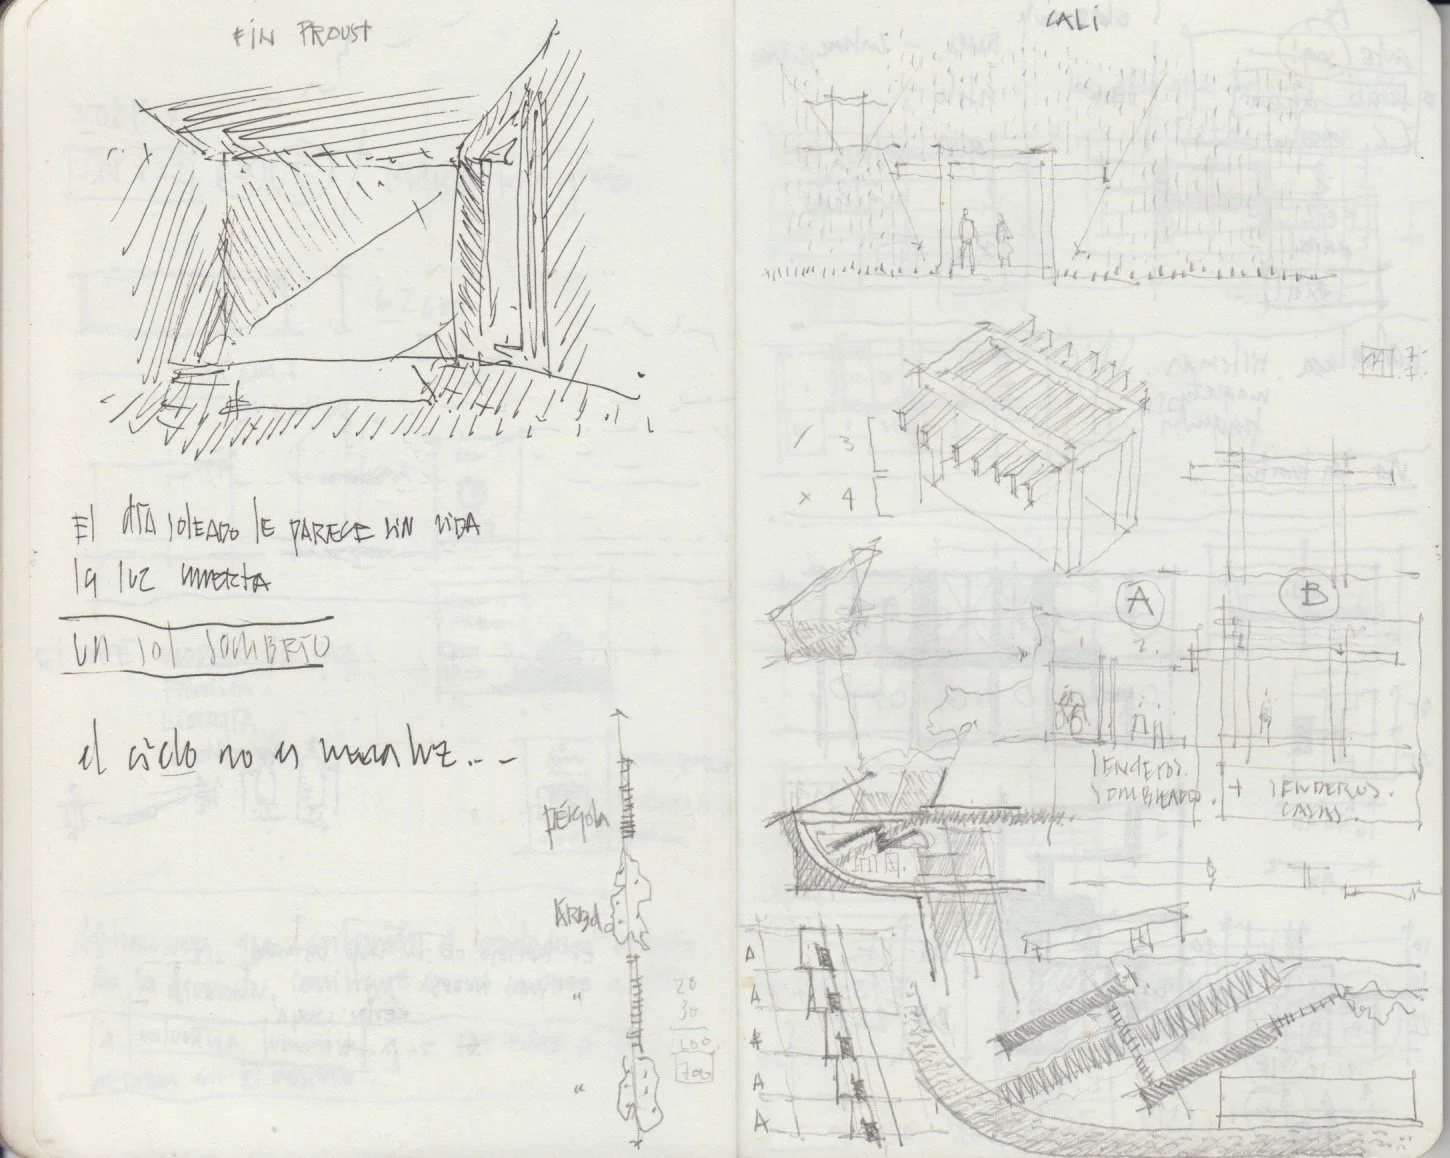 FIN PROUST
El DÍA SOLEADO lE PARECE UN VIDA
la luz muerta
UN SOl SOMBRÍO
el cielo no es mera luz...
Pérgola
Árbol
"
"
20
30
600
700
CALI
/ 3
x 4
A
B
1. 2.
SENDEROS.
SOMBREADO.
+ SENDEROS.
CASAS.
A
A
A
A
A